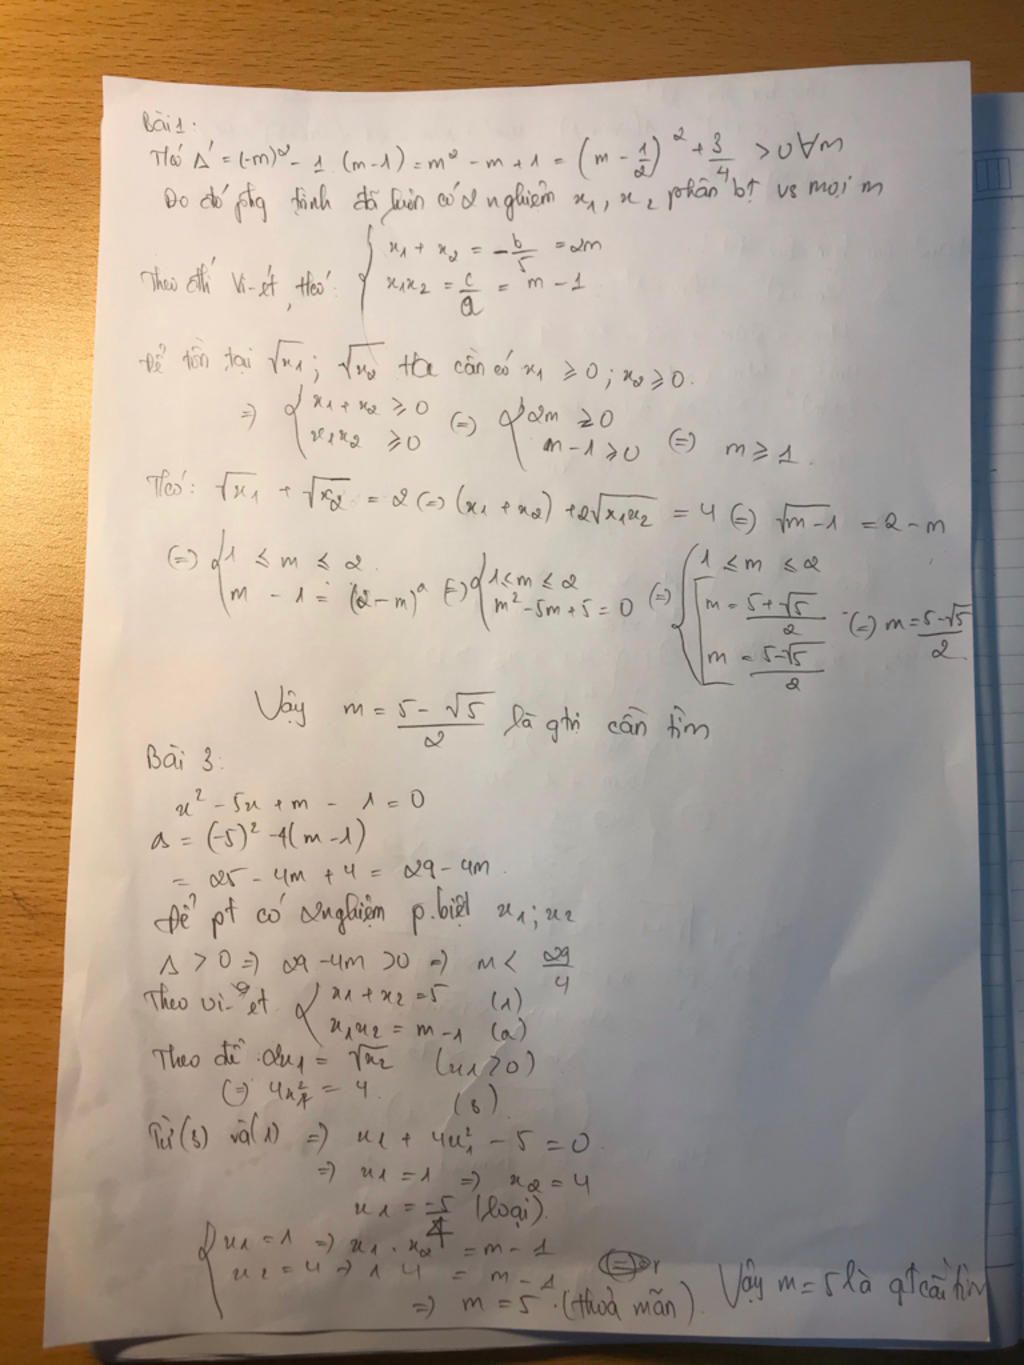 Bài 1:
Ta có Δ' = (-m)² - 1.(m-1) = m² - m + 1 = (m - 1/2)² + 3/4 > 0 ∀m
Do đó ptg trình đã luôn có 2 nghiệm x₁, x₂ phân bt vs mọi m
Theo đlí Vi-ét, ta có: { x₁ + x₂ = -b/5 = 2m
x₁x₂ = c/a = m - 1
Để tồn tại √x₁ ; √x₂ ta cần có x₁ ⩾ 0 ; x₂ ⩾ 0.
⇒ { x₁ + x₂ ⩾ 0 (=) { 2m ⩾ 0
x₁x₂ ⩾ 0 m - 1 ⩾ 0 (=) m ⩾ 1.
Ta có: √x₁ + √x₂ = 2 (=) (x₁ + x₂) + 2√x₁x₂ = 4 (=) √m-1 = 2 - m
(=) { 1 ≤ m ≤ 2 (=) { 1 ≤ m ≤ 2 (=) { 1 ≤ m ≤ 2
m - 1 = (2-m)² m² - 5m + 5 = 0 [ m = (5+√5)/2 (=) m = (5-√5)/2
m = (5-√5)/2
Vậy m = (5 - √5)/2 là gtrị cần tìm
Bài 3:
x² - 5x + m - 1 = 0
Δ = (-5)² - 4(m-1)
= 25 - 4m + 4 = 29 - 4m
Để pt có 2 nghiệm p.biệt x₁; x₂
Δ > 0 ⇒ 29 - 4m > 0 ⇒ m < 29/4
Theo vi-et { x₁ + x₂ = 5 (1)
x₁x₂ = m - 1 (2)
Theo đề 2x₁ = √x₂ (x₁ > 0)
(=) 4x₁² = 4. (3)
Từ (3) và (1) ⇒ x₁ + 4x₁² - 5 = 0
⇒ x₁ = 1 ⇒ x₂ = 4
x₁ = -5/4 (loại)
{ x₁ = 1 ⇒ x₁ . x₂ = m - 1
x₂ = 4 ⇒ 1 4 = m - 1
⇒ m = 5 (thoả mãn). Vậy m = 5 là gt cần tìm